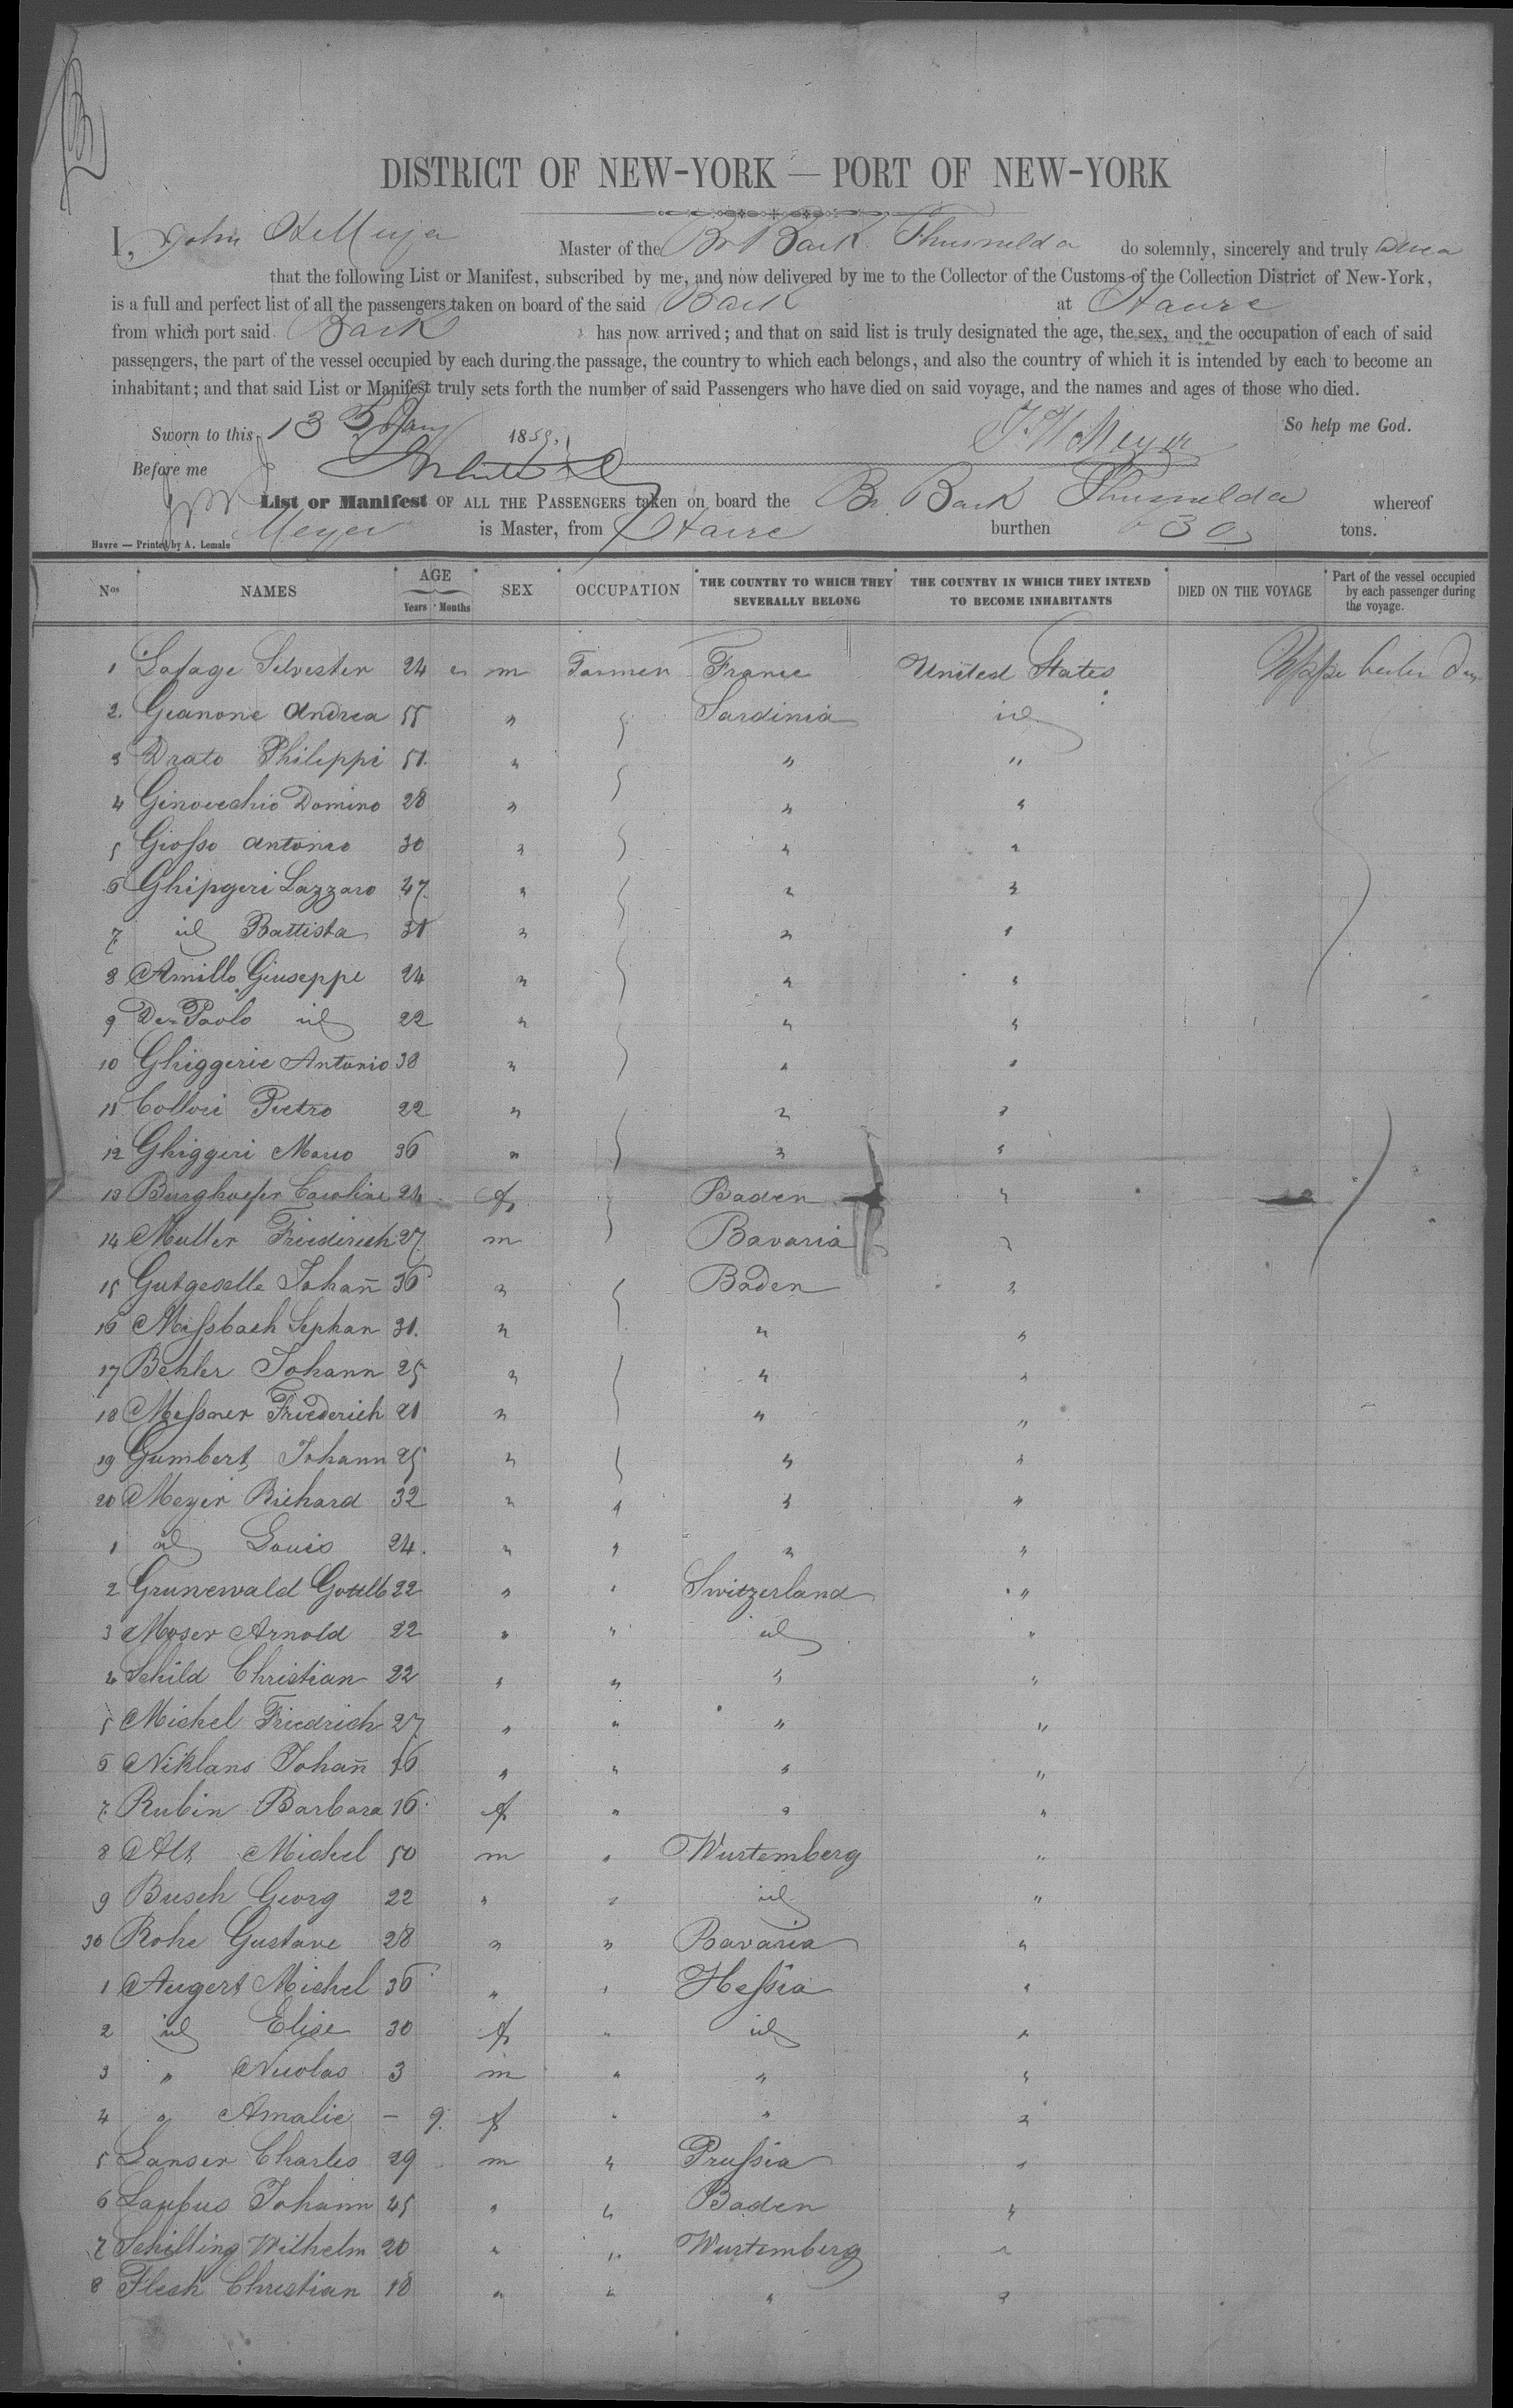 DISTRICT OF NEW-YORK — PORT OF NEW-YORK
I, John Meyer Master of the Br Bark Thusnelda do solemnly, sincerely and truly swear
that the following List or Manifest, subscribed by me, and now delivered by me to the Collector of the Customs of the Collection District of New-York,
is a full and perfect list of all the passengers taken on board of the said Bark at Havre
from which port said Bark has now arrived; and that on said list is truly designated the age, the sex, and the occupation of each of said
passengers, the part of the vessel occupied by each during the passage, the country to which each belongs, and also the country of which it is intended by each to become an
inhabitant; and that said List or Manifest truly sets forth the number of said Passengers who have died on said voyage, and the names and ages of those who died.
Sworn to this 13 Jany 1859. So help me God.
Before me
List or Manifest OF ALL THE PASSENGERS taken on board the Br. Bark Thusnelda whereof
Meyer is Master, from Havre burthen tons.
Havre — Printed by A. Lemale
Nos NAMES AGE Years Months SEX OCCUPATION THE COUNTRY TO WHICH THEY SEVERALLY BELONG THE COUNTRY IN WHICH THEY INTEND TO BECOME INHABITANTS DIED ON THE VOYAGE Part of the vessel occupied by each passenger during the voyage.
1 Lafage Silvester 24 " m Farmer France United States
2. Geanone Andrea 55 " Sardinia id
3 Drato Philippi 51. " " "
4 Ginocchio Domino 28 " " "
5 Giosso Antonio 30 " " "
6 Ghipgeri Lazzaro 47. " " "
7 id Battista 31 " " "
8 Amillo Giuseppe 24 " " "
9 De-Paolo id 22 " " "
10 Ghiggerie Antonio 38 " " "
11 Collori Pietro 22 " " "
12 Ghiggeri Mario 36 " " "
13 Burghoefer Caroline 24 f Baden "
14 Muller Friederich 27. m Bavaria "
15 Gutgeselle Johan̄ 36 " Baden "
16 Missbach Sephan 31. " " "
17 Behler Johann 25 " " "
18 Messner Friederich 21 " " "
19 Gumbert Johann 25 " " "
20 Meyer Richard 32 " " " "
1 id Louis 24. " " " "
2 Grunewald Gottlb 22 " " Switzerland "
3 Moser Arnold 22 " " id "
4 Schild Christian 22 " " " "
5 Michel Friedrich 27 " " " "
6 Niklans Johan̄ 36 " " " "
7. Rubin Barbara 16. f " " "
8 Alt Michel 50 m " Wurtemberg "
9 Busch Georg 22 " " id "
30 Rohe Gustave 28 " " Bavaria "
1 Augert Michel 36 " " Hessia "
2 id Elise 30 f " id "
3 " Nicolas 3 m " " "
4 " Amalie — 9. f " " "
5 Lanser Charles 29 m " Prussia "
6 Laubus Johann 45 " " Baden "
7 Schilling Wilhelm 20 " " Wurtemberg "
8 Flesh Christian 18 " " " "